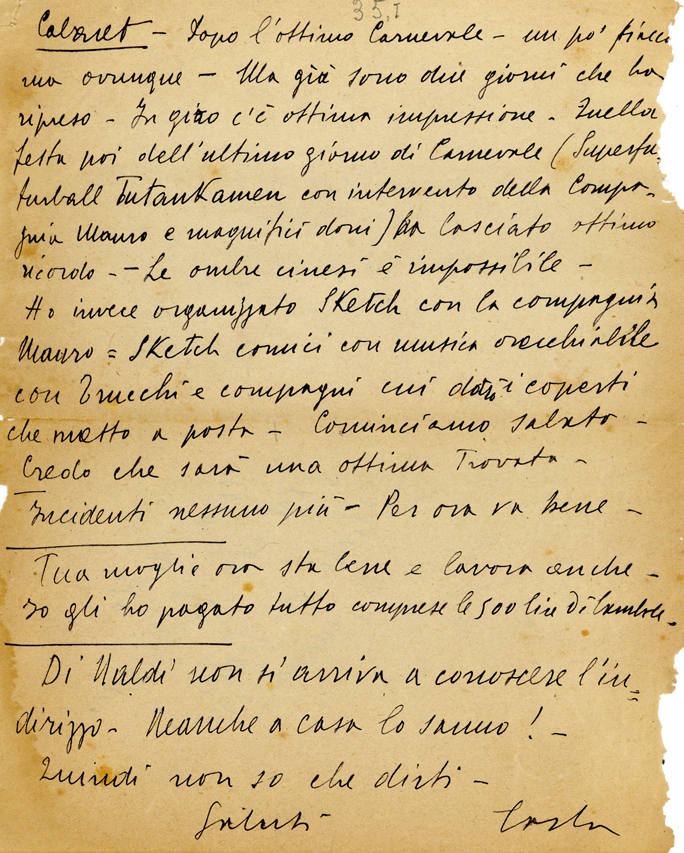 35, I
Cabaret - Dopo l'ottimo Carnevale - un po' fiacca
ma ovunque - Ma già sono due giorni che ha
ripreso - In giro c'è ottima impressione - Quella
festa poi dell'ultimo giorno di Carnevale (Superfu-
turball Tutankamen con intervento della Compa-
gnia Mauro e magnifici doni) ha lasciato ottimo
ricordo - - Le ombre cinesi è impossibile -
Ho invece organizzato Sketch con la compagnia
Mauro = Sketch comici con musica orecchiabile
con Trucchi e compagni cui i coperti
che metto a posta - Cominciamo sabato -
Credo che sarà una ottima Trovata -
Incidenti nessuno più - Per ora va bene -
Tua moglie ora sta bene e lavora anche -
Io gli ho pagato tutto comprese le 500 lire di
Di Naldi non si arriva a conoscere l'in=
dirizzo - Neanche a casa lo sanno! -
Quindi non so che dirti -
Saluti